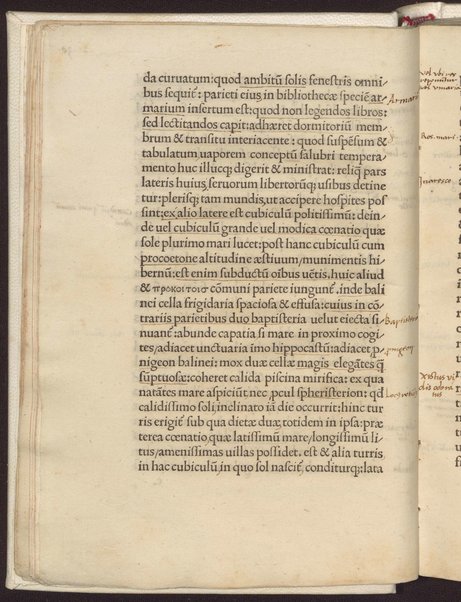 da curuatum: quod ambitũ solis fenestris omni
bus sequiť: parieti eius, in bibliothecæ speciẽ ar
marium insertum est: quod non legendos libros:
sed lectitandos capit: adhæret dormitoriũ mem
brum & transitu interiacente: quod suspẽsum &
tabulatum, uaporem conceptũ salubri tempera
mento huc illucq; digerit & ministrat: reliq̃ pars
lateris huius, seruorum libertorũq; usibus detine
tur: plerisq; tam mundis, ut accipere hospites pos
sint: ex alio latere est cubiculũ politissimũ: dein
de uel cubiculũ grande uel modica cœnatio quæ
sole plurimo mari lucet: post hanc cubiculũ cum
procoetone altitudine æstiuum/ munimentis hi
bernũ: est enim subductũ oĩbus uẽtis. huic aliud
& προκοιτοισ cõmuni pariete iungunť. inde bali
nei cella frigidaria spaciosa & effusa: cuius in cõ
trariis parietibus duo baptisteria uelut eiecta si
nuanť: abunde capatia si mare in proximo cogi
tes/ adiacet unctuaria ĩmo hippocastũ: adiacet p
nigeon balinei: mox duæ cellæ magis elegãtes q̃
sũptuosæ: coheret calida piscina mirifica: ex qua
natãtes mare aspiciũt nec pcul spheristerion: qd
calidissimo soli, inclinato iã die occurrit: hinc tur
ris erigiť sub qua dietæ duæ, totidem in ipsa: præ
terea cœnatio, quæ latissimũ mare/ longissimũ li
tus/ amenissimas uillas possidet. est & alia turris
in hac cubiculũ, in quo sol nasciť, conditurq;: lata
Armari
Ros. mari
Baptister
pnigeon
Xistus vi
olis odora
tus